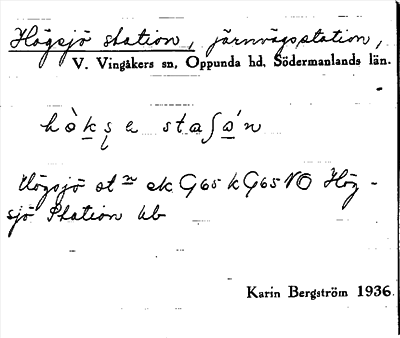 Högsjö station, järnvägsstation,
V. Vingåkers sn, Oppunda hd, Södermanlands län.
hò̀kʂe staʃa'n
Högsjö st n ek G65 k G65 NO Hög-
sjö Station kb
Karin Bergström 1936.